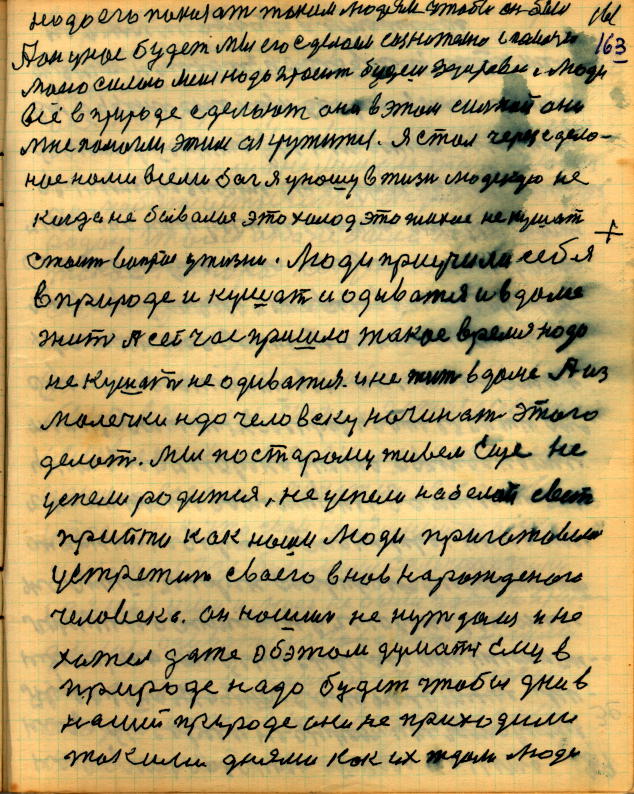 надо его показат таким людям чтобы он был
162
163
А он уже будет мы его сделаем сознательно
мою силою меня надо просит будеш здоровая. Люди
всё в природе сделают они в этом силной они
мне помогли этим окружитя. Я стал через сдела-
ное нами всеми бог я уношу в жизн людскую не
когда не бывалая это холод это такое не кушат
стоит вопрос у жизни. Люди приучили себя
в природе и кушат и одиватя и в доме
жит А сейчас пришло такое время надо
не кушат не одиватя. и не жит в доме А из
малечки надо человеку начинат этого
делат. Мы постарому живем Еще не
успели родится, не успели на белый свет
прийти как наши люди приготовили
устретит своего внов нарожденого
человека. он нашим не нуждался и не
хател даже обэтом думати Ему в
природе надо будет чтобы дни в
нашей природе они не приходили
такими днями как их ждали люди